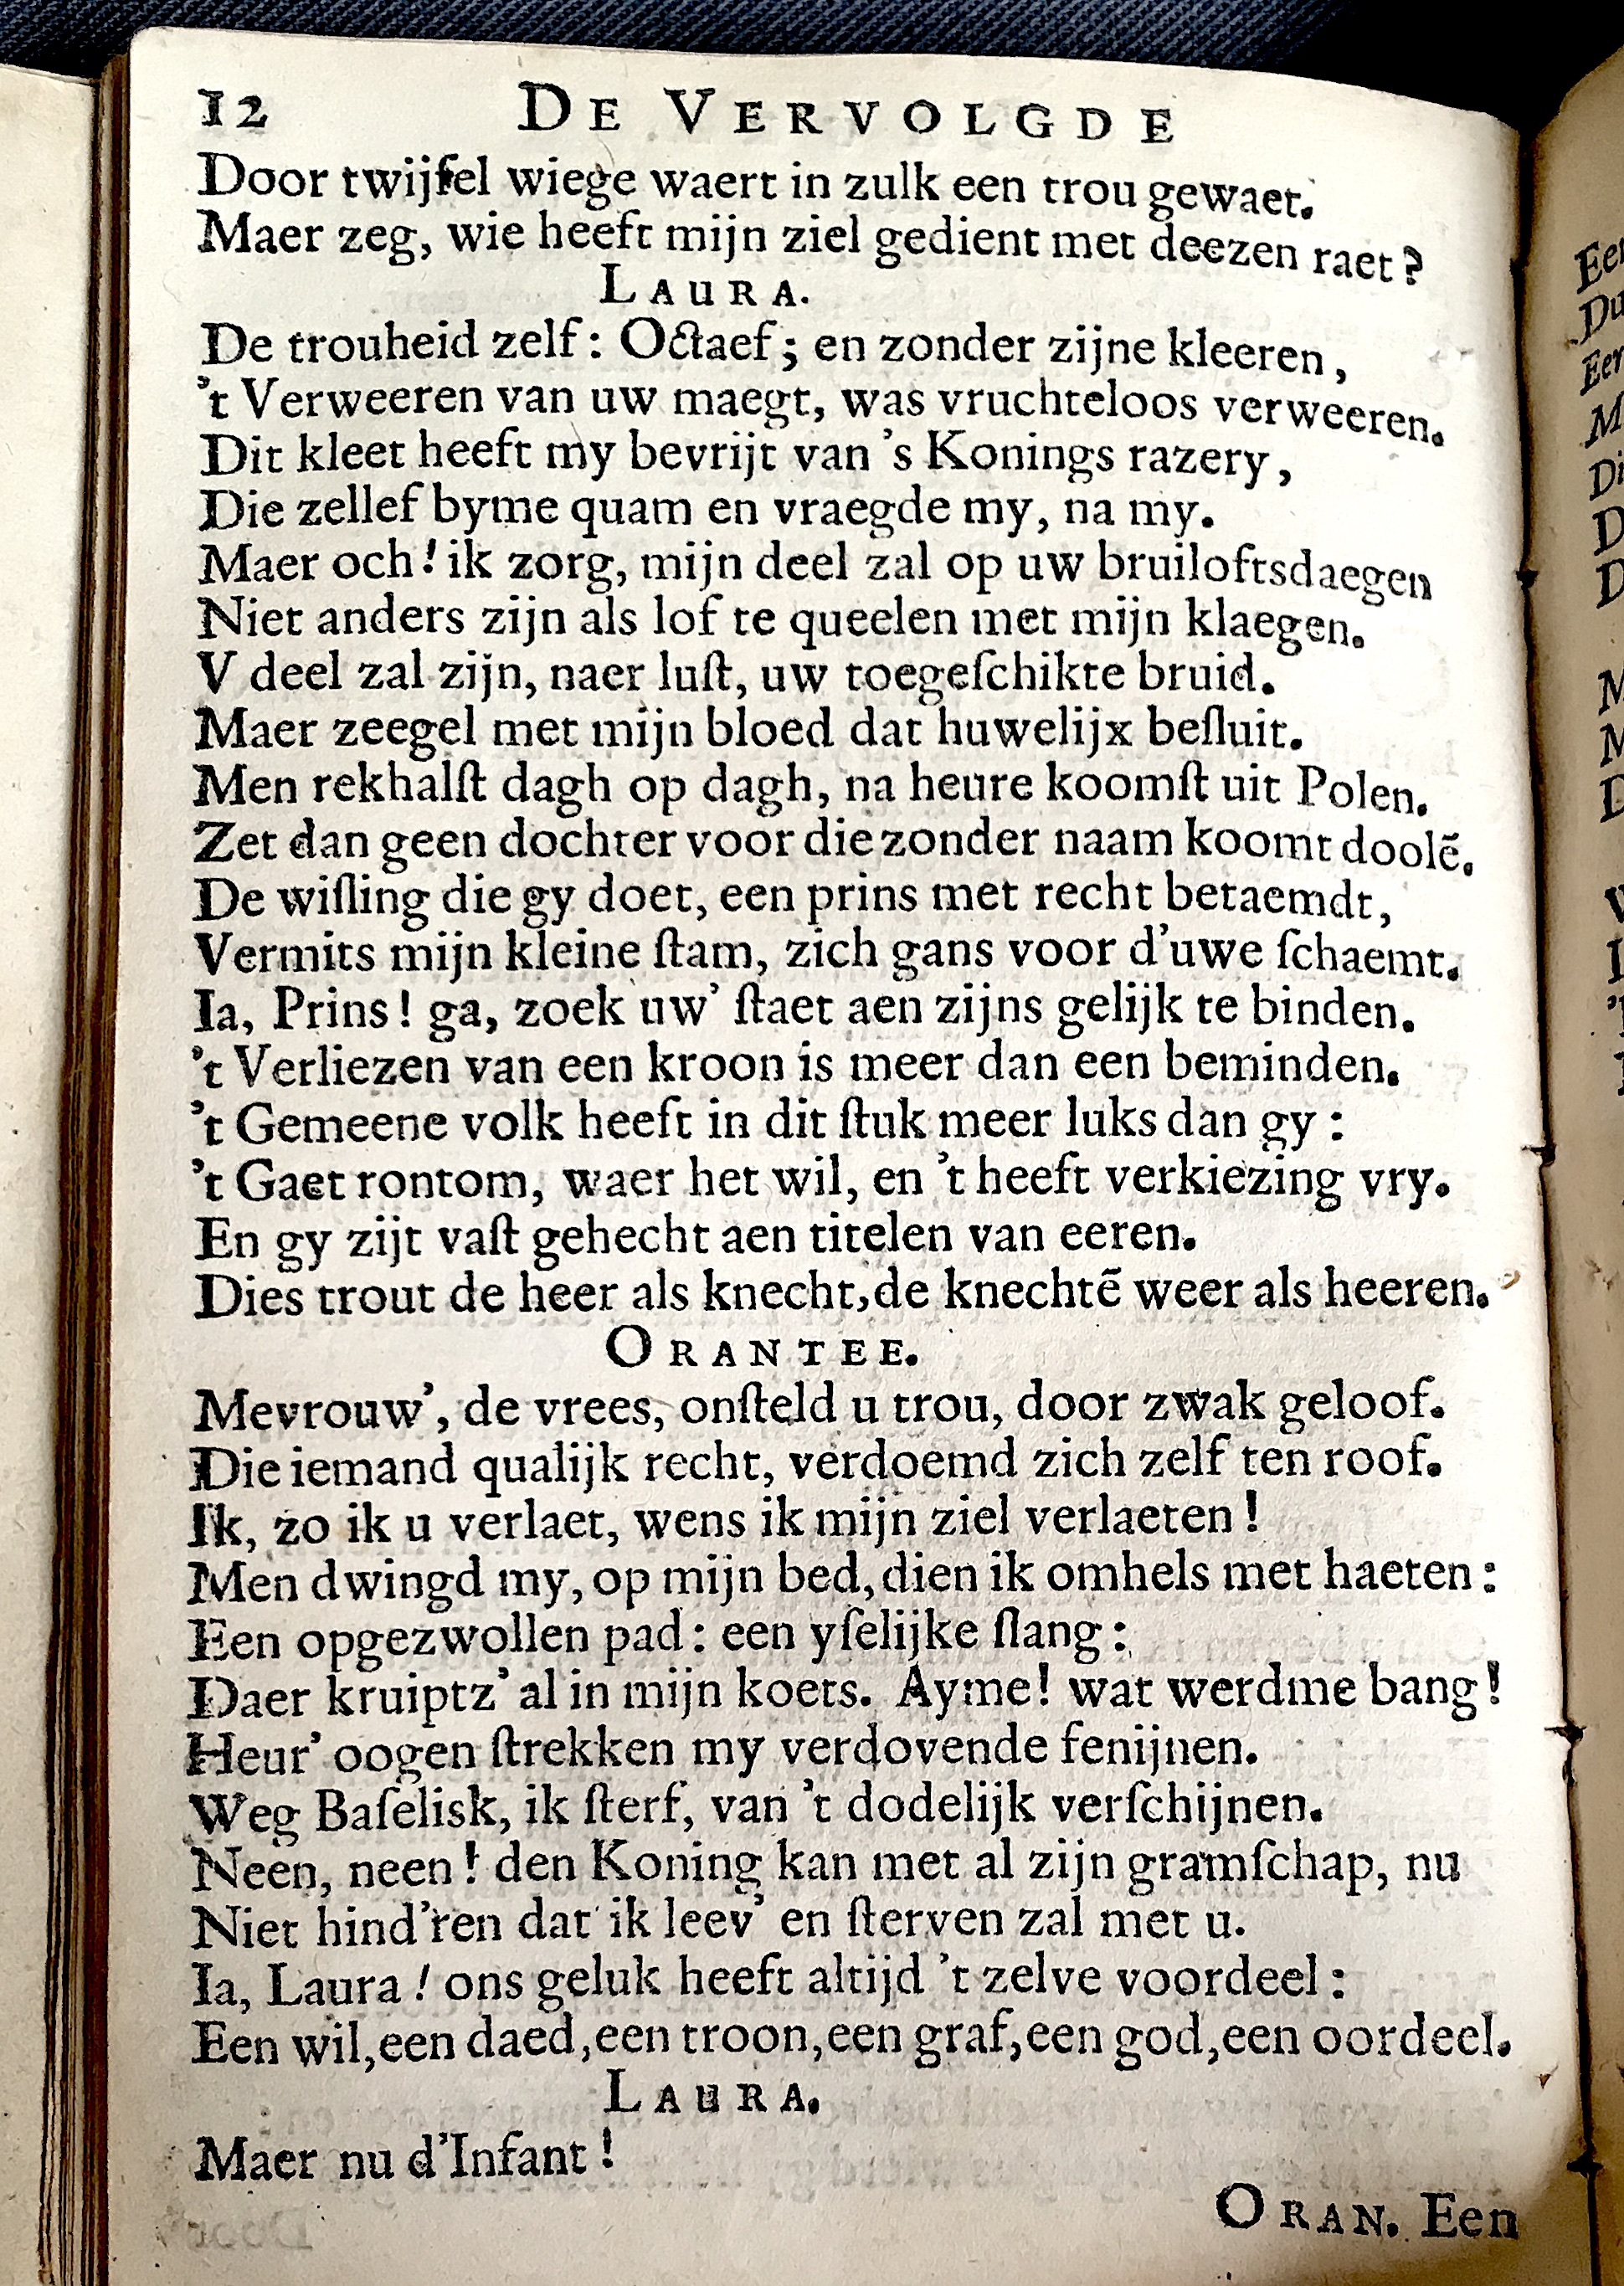 12 DE VERVOLGDE
Door twijfel wiege waert in zulk een trou gewaet.
Maer zeg, wie heeft mijn ziel gedient met deezen raet?
LAURA.
De trouheid zelf: Octaef; en zonder zijne kleeren,
't Verweeren van uw maegt, was vruchteloos verweeren.
Dit kleet heeft my bevrijt van 's Konings razery,
Die zellef byme quam en vraegde my, na my.
Maer och! ik zorg, mijn deel zal op uw bruiloftsdaegen
Niet anders zijn als lof te queelen met mijn klaegen.
V deel zal zijn, naer luſt, uw toegeſchikte bruid.
Maer zeegel met mijn bloed dat huwelijx beſluit.
Men rekhalſt dagh op dagh, na heure koomſt uit Polen.
Zet dan geen dochter voor die zonder naam koomt doolē.
De wiſling die gy doet, een prins met recht betaemdt,
Vermits mijn kleine ſtam, zich gans voor d'uwe ſchaemt.
Ia, Prins! ga, zoek uw' ſtaet aen zijns gelijk te binden.
't Verliezen van een kroon is meer dan een beminden.
't Gemeene volk heeft in dit ſtuk meer luks dan gy:
't Gaet rontom, waer het wil, en 't heeft verkiezing vry.
En gy zijt vaſt gehecht aen titelen van eeren.
Dies trout de heer als knecht, de knechtē weer als heeren.
ORANTEE.
Mevrouw', de vrees, onſteld u trou, door zwak geloof.
Die iemand qualijk recht, verdoemd zich zelf ten roof.
Ik, zo ik u verlaet, wens ik mijn ziel verlaeten!
Men dwingd my, op mijn bed, dien ik omhels met haeten:
Een opgezwollen pad: een yſelijke ſlang:
Daer kruiptz' al in mijn koets. Ayme! wat werdme bang!
Heur' oogen ſtrekken my verdovende fenijnen.
Weg Baſelisk, ik ſterf, van 't dodelijk verſchijnen.
Neen, neen! den Koning kan met al zijn gramſchap, nu
Niet hind'ren dat ik leev' en ſterven zal met u.
Ia, Laura! ons geluk heeft altijd 't zelve voordeel:
Een wil, een daed, een troon, een graf, een god, een oordeel.
LAURA.
Maer nu d'Infant!
ORAN. Een